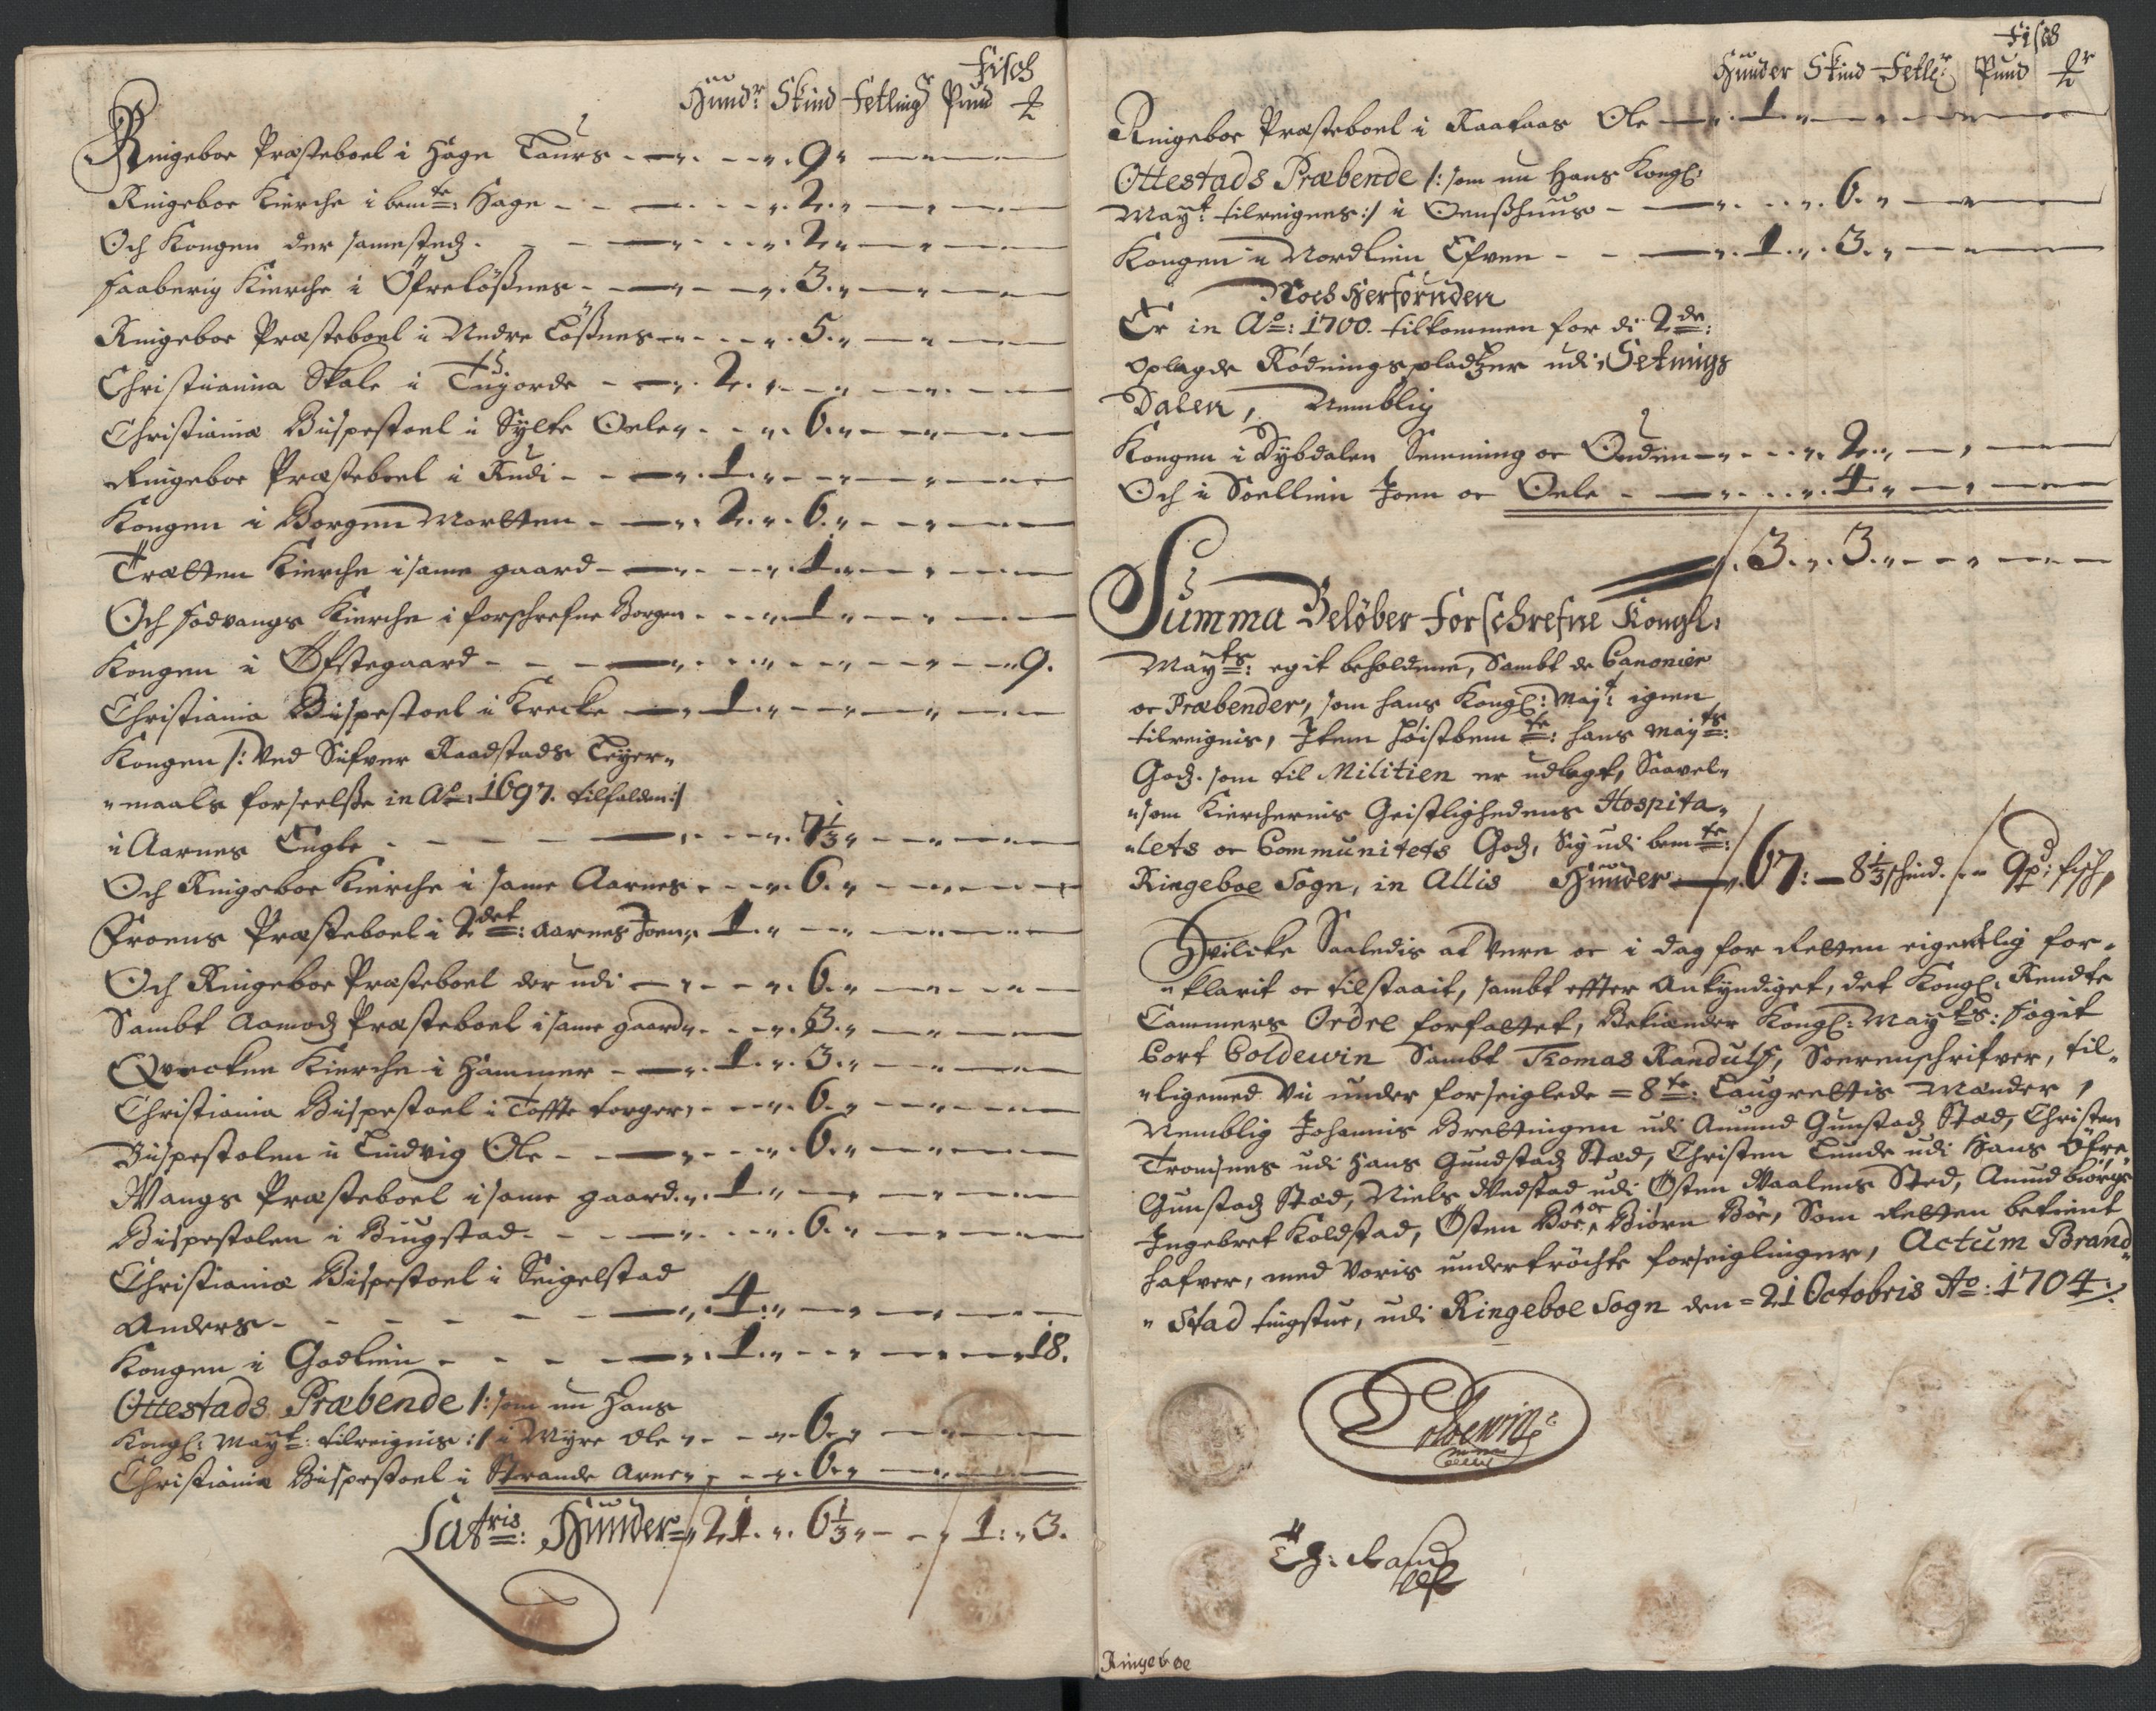 Fisch
Hundr: Skind Fetlingr Pund ℔
Ringeboe Præsteboel i Høge Taurs - 9
Ringeboe Kierche i bemte: Hage - 2
Och Kongen der samestedz - 2
Faaberig Kierche i Öfrelößnes - 3
Ringeboe Præsteboel i Nedre Lößnes - 5
Christiania Skole i - 2
Christiania Bispestoel i Sylte Oele - 6
Ringeboe Præsteboel i Rudi - 1
Kongen i Borgen Mortten - 2 6
Trætten Kierche i same gaard - 1
Och Fodvangs Kierche i forschrefne Borgen - 1
Kongen i Öfstegaard - 9
Christiania Bispestoel i Krecke - 1
Kongen /: Ved Sifver Raadstads Leyer-
maals forseelße in Ao: 1697. tilfalden :/
i Aarnes Engle - 7 1/3
Och Ringeboe Kierche i same Aarnes - 6
Froens Præsteboel i 2det: Aarnes Joen - 1
Och Ringeboe Præsteboel der udi - 6
Sambt Aamodz Præsteboel i same gaard - 3
Kierche i Hammer - 1 3
Christiania Bispestoel i Toffte - 6
Bispestolen i Lindvig Ole - 6
Wangs Præsteboel i same gaard - 1
Bispestolen i Biugstad - 6
Christiania Bispestoel i Seigelstad
Anders - 4
Kongen i Godlien - 1 18.
Ottestads Præbende /: som nu Hans
Kongl: Mayt: tilreignis :/ i Myre Ole - 6
Christiania Bispestoel i Strande Arne - 6
Latris: Hunder 21. 6 1/3 - 1: 3.
Fisch
Hunder Skind Fetlr: Pund ℔r
Ringeboe Præsteboel i Kaataas Ole - 1
Ottestads Præbende /: som nu Hans Kongl:
Mayt: tilreignes :/ i Oenßhuus - 6
Kongen i Nordlien Efven - 1 3
Noch Herforuden
Er in Ao: 1700. tilkommen for di 2de:
Oplagde Rødningspladtzer udi Setnings
Dalen, Nemblig
Kongen i Dybdalen Simning oc Enden - 2
Och i Soellien Joen oc Oele - 4
3 3
Summa Belöber Forschrefne Kongl:
Mayts: egit beholdene, Sambt de Canonier
oc Præbender, som hans Kongl: Majt: igien
tilreignis, Item høistbemte: hans Mayts:
Godz som til Militien er udlagt, Saavel-
som Kierchernis Geistlighedens Hospita-
lets oc Communitets Godz, Sig udi bemte:
Ringeboe Sogn, in Allis Hunder 67: 8 1/3 schind. 9 pd: fisch,
Hvilcke Saaledis at Være oc i dag for Retten eigentlig for-
klarit oc tilstaait, sambt effter Ankyndiget, det Kongl: Rendte
Cammers Ordre forfattet, Bekiender Kongl: Mayts: fogit
Cort Coldewin Sambt Thomas Randulf, Sorenschrifver, til-
ligemed Vii under forseiglede = 8te: Laugrettis Mænder,
Nemblig Johannis Brettingen udi Amund Gunstadz Stæd, Christen
Tromsnes udi Hans Gundstadz Stæd, Christen Lunde udi Hans Öfre
Gunstadz Stæd, Niels Wedstad udi Østen Waalens Sted, Amund Biørge
Ingebret Koldstad, Östen Böe, oc Biörn Böe, Som Retten betient
hafver, med Voris undertröchte forseiglinger, Actum Brand-
stad tingstue, udi Ringeboe Sogn den = 21 Octobris Ao: 1704.
Coldewin
Th: Randulf
Ringeboe